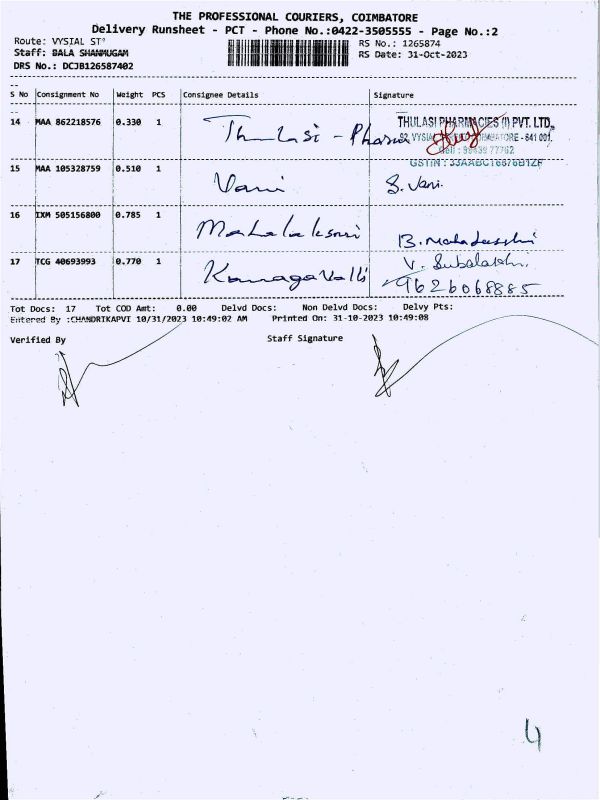 THE PROFESSIONAL COURIERS, COIMBATORE
Delivery Runsheet - PCT - Phone No.:0422-3505555 - Page No.:2
Route: VYSIAL ST°
RS No.: 1265874
Staff: BALA SHANMUGAM
RS Date: 31-Oct-2023
DRS No.: DCJB126587402
S No Consignment No Weight PCS Consignee Details Signature
14 MAA 862218576 0.330 1 Thulasi - Pharma
THULASI PHARMACIES (I) PVT. LTD.,
15 MAA 105328759 0.510 1 Vani S. Vani.
16 IXM 505156800 0.785 1 Mahalaksmi B.
17 TCG 40693993 0.770 1 Kanagavalli V.
9626068885
Tot Docs: 17 Tot COD Amt: 0.00 Delvd Docs: Non Delvd Docs: Delvy Pts:
Entered By :CHANDRIKAPVI 10/31/2023 10:49:02 AM Printed On: 31-10-2023 10:49:08
Verified By Staff Signature
4